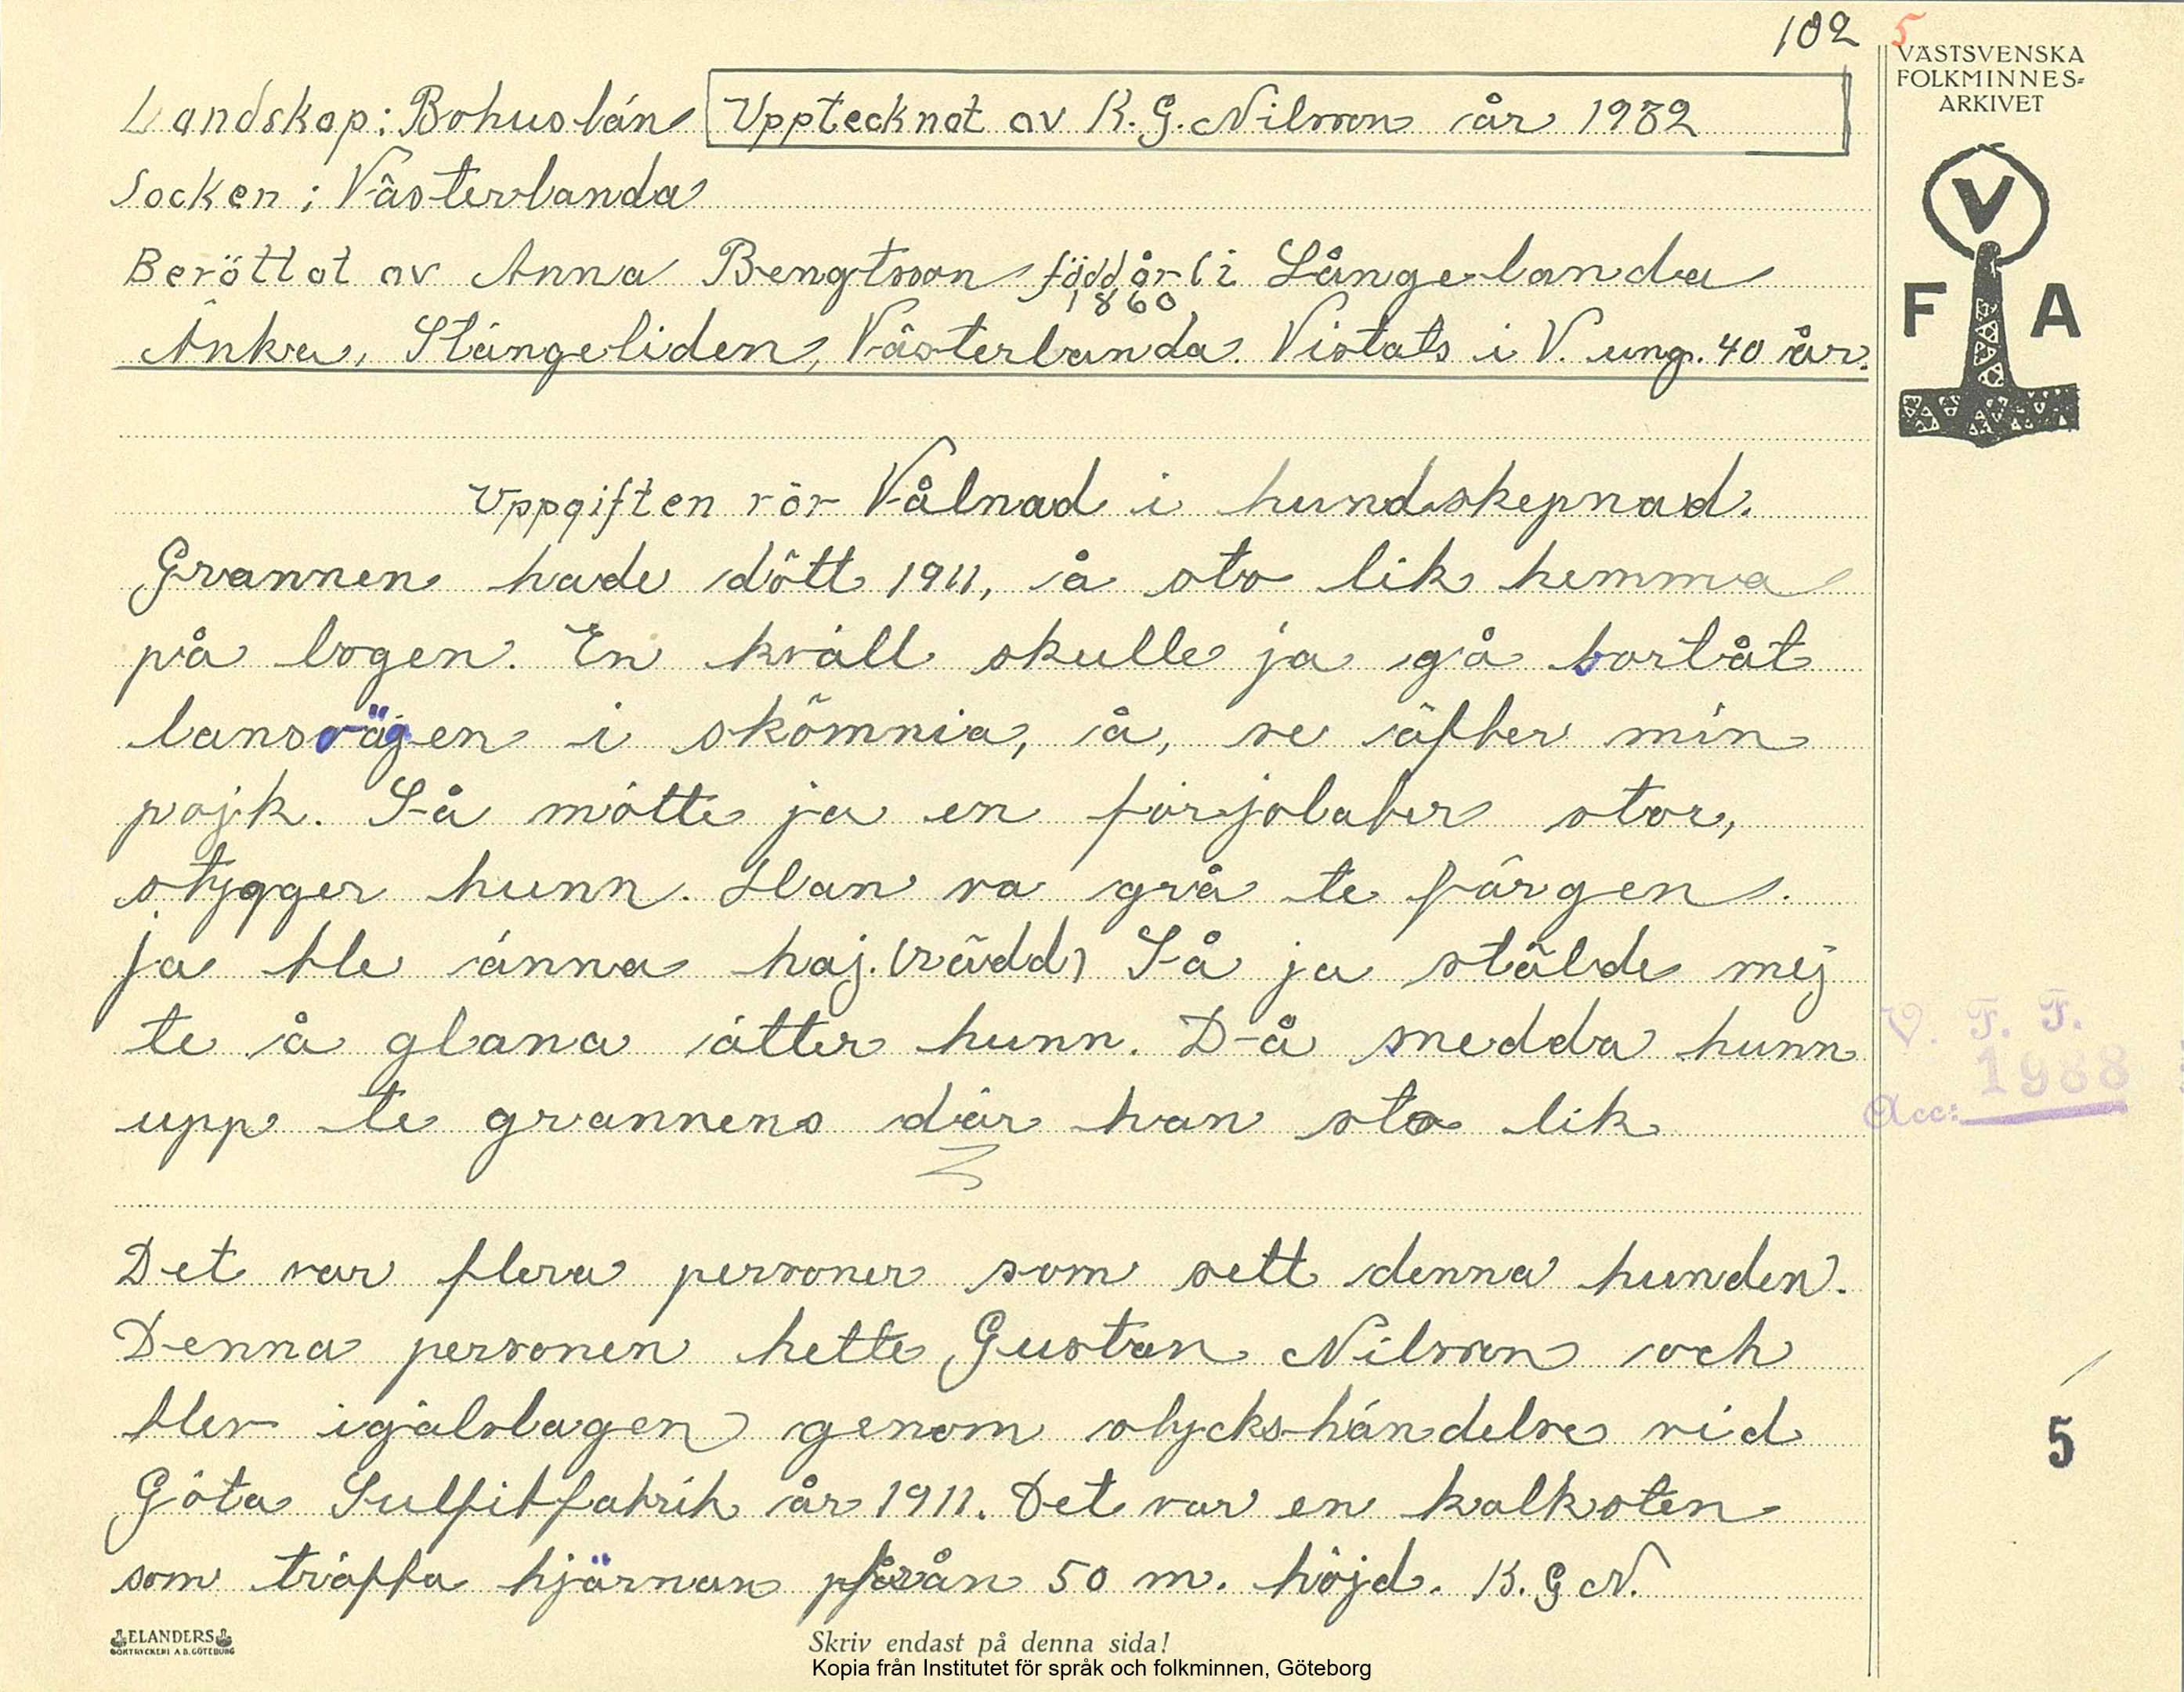 102 5
VÄSTSVENSKA
FOLKMINNES-
ARKIVET
V
F A
Landskap: Bohuslän Upptecknat av K. G. Nilsson år 1932
Socken: Västerlanda
Berättat av Anna Bengtsson född år i Långelanda
1860
Änka, Stängeliden, Västerlanda. Vistats i V. ung. 40 år.
Uppgiften rör Vålnad i hundskepnad.
Grannen hade dött 1911, å sto lik hemma
på logen. En kväll skulle ja gå bortåt
lansvägen i skömnia, å, se äfter min
pojk. Så mötte ja en förjolater stor,
stygger hunn. Han va grå te färgen.
ja ble änna haj. (rädd) Så ja stälde mej
te å glana ätter hunn. D-å snedda hunn
upp te grannens där han sto lik
V. F. F.
1988
Acc:
Det var flera personer som sett denna hunden.
Denna personen hette Gustav Nilsson och
blev igälslagen genom olyckshändelse vid
Göta Sulfitfabrik år 1911. Det var en kalksten
som träffa hjärnan från 50 m. höjd. K. G N.
5
ELANDERS
BOKTRYCKERI A.B. GÖTEBORG
Skriv endast på denna sida!
Kopia från Institutet för språk och folkminnen, Göteborg